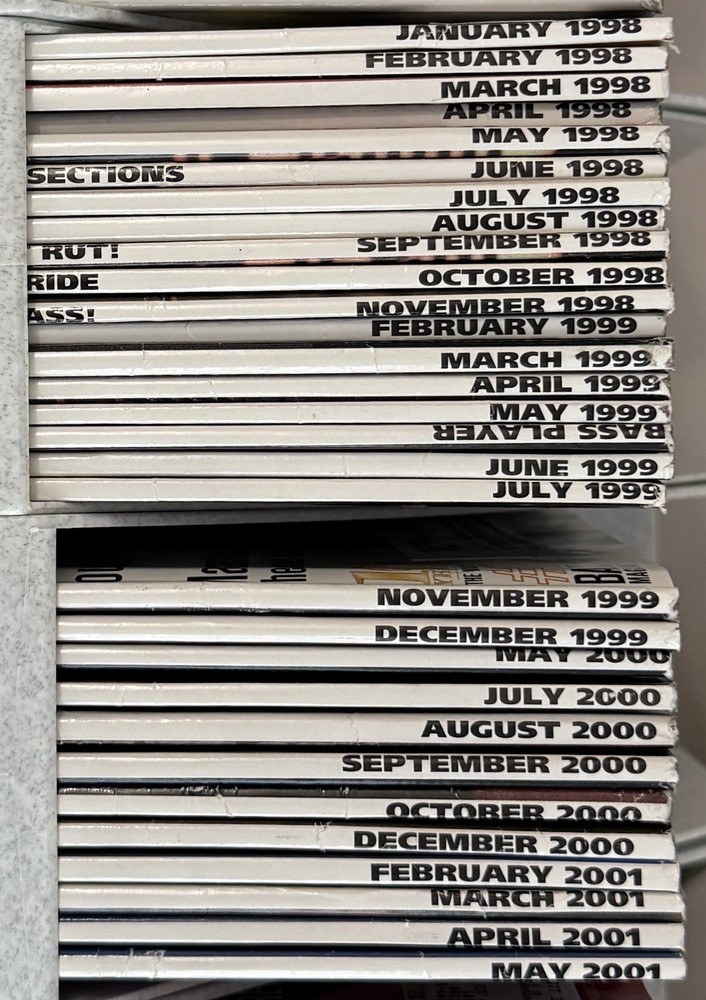 JANUARY 1998
FEBRUARY 1998
MARCH 1998
APRIL 1998
MAY 1998
SECTIONS JUNE 1998
JULY 1998
AUGUST 1998
RUT! SEPTEMBER 1998
RIDE OCTOBER 1998
ASS! NOVEMBER 1998
FEBRUARY 1999
MARCH 1999
APRIL 1999
MAY 1999
BASS PLAYER
JUNE 1999
JULY 1999
NOVEMBER 1999
DECEMBER 1999
MAY 2000
JULY 2000
AUGUST 2000
SEPTEMBER 2000
OCTOBER 2000
DECEMBER 2000
FEBRUARY 2001
MARCH 2001
APRIL 2001
MAY 2001